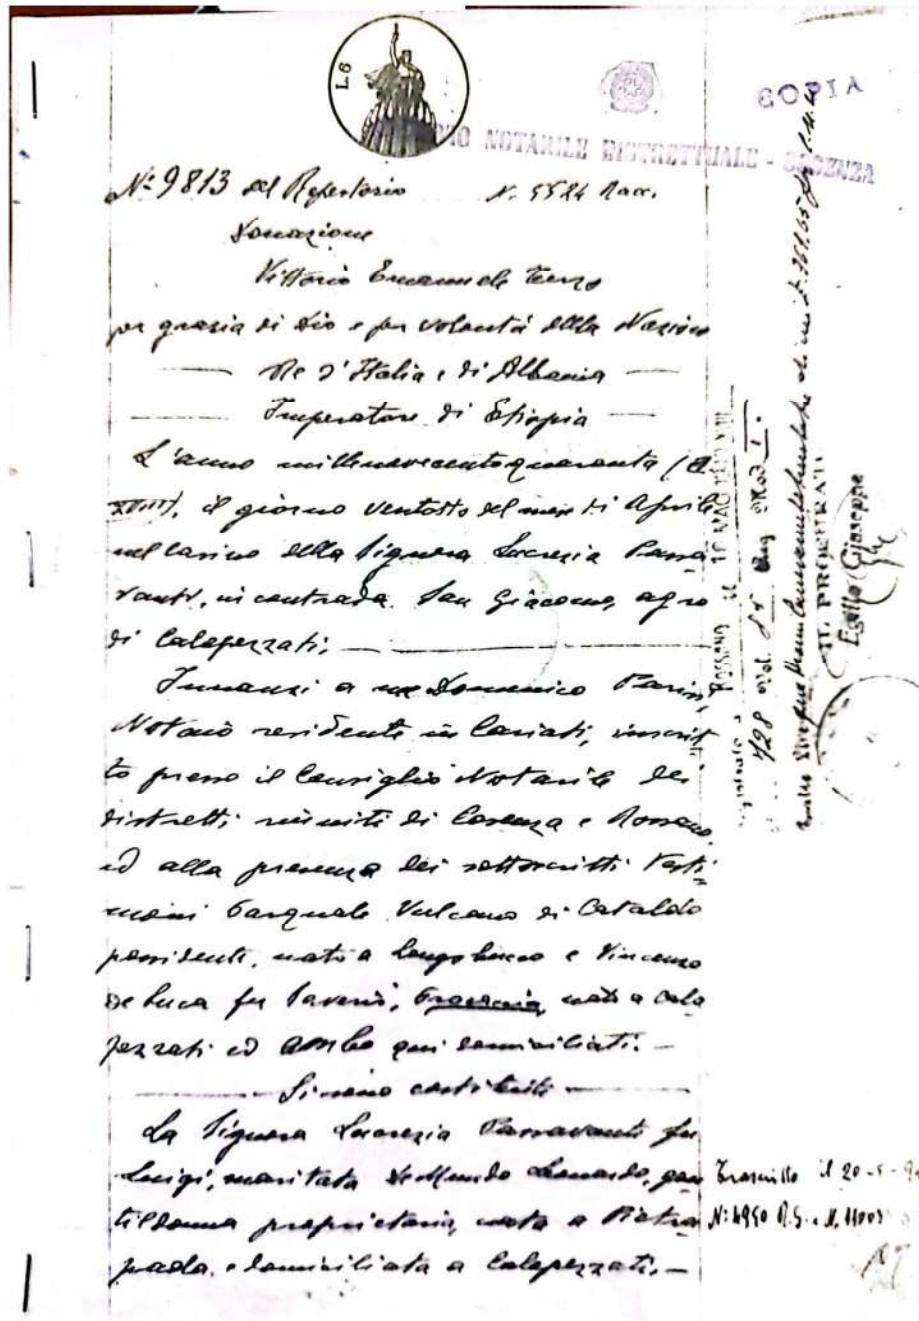 L 6
COPIA
NOTARILE DISTRETTUALE - COSENZA
N° 9813 del Repertorio N. 5524 Racc.
Donazione
Vittorio Emanuele Terzo
per grazia di Dio e per volontà della Nazione
Re d'Italia e di Albania
Imperatore di Etiopia
L'anno millenovecentoquaranta (A.
XVIII), il giorno ventotto del mese di Aprile
nel casino della Signora Lucrezia Parra
vanti, in contrada San Giacomo, agro
di Calopezzati,
Innanzi a me Domenico
Notaio residente in Cariati, inscrit
to presso il Consiglio Notarile dei
distretti riuniti di Cosenza e Rossano,
ed alla presenza dei sottoscritti Testi
moni Pasquale Vulcano di Cataldo
possidente, nato a Longobucco e Vincenzo
De Luca fu Saverio, nato a Calo
pezzati ed ambo qui domiciliati. —
Si sono costituiti
La Signora Lucrezia Parravanti fu
Luigi, maritata De Mundo Leonardo, gen
tildonna proprietaria, nata a Pietra
paola e domiciliata a Calopezzati. —
Rossano
728 Vol. 85 Mod. I.
IL PROCURATORE
Giuseppe
Trascritto il 20-5-